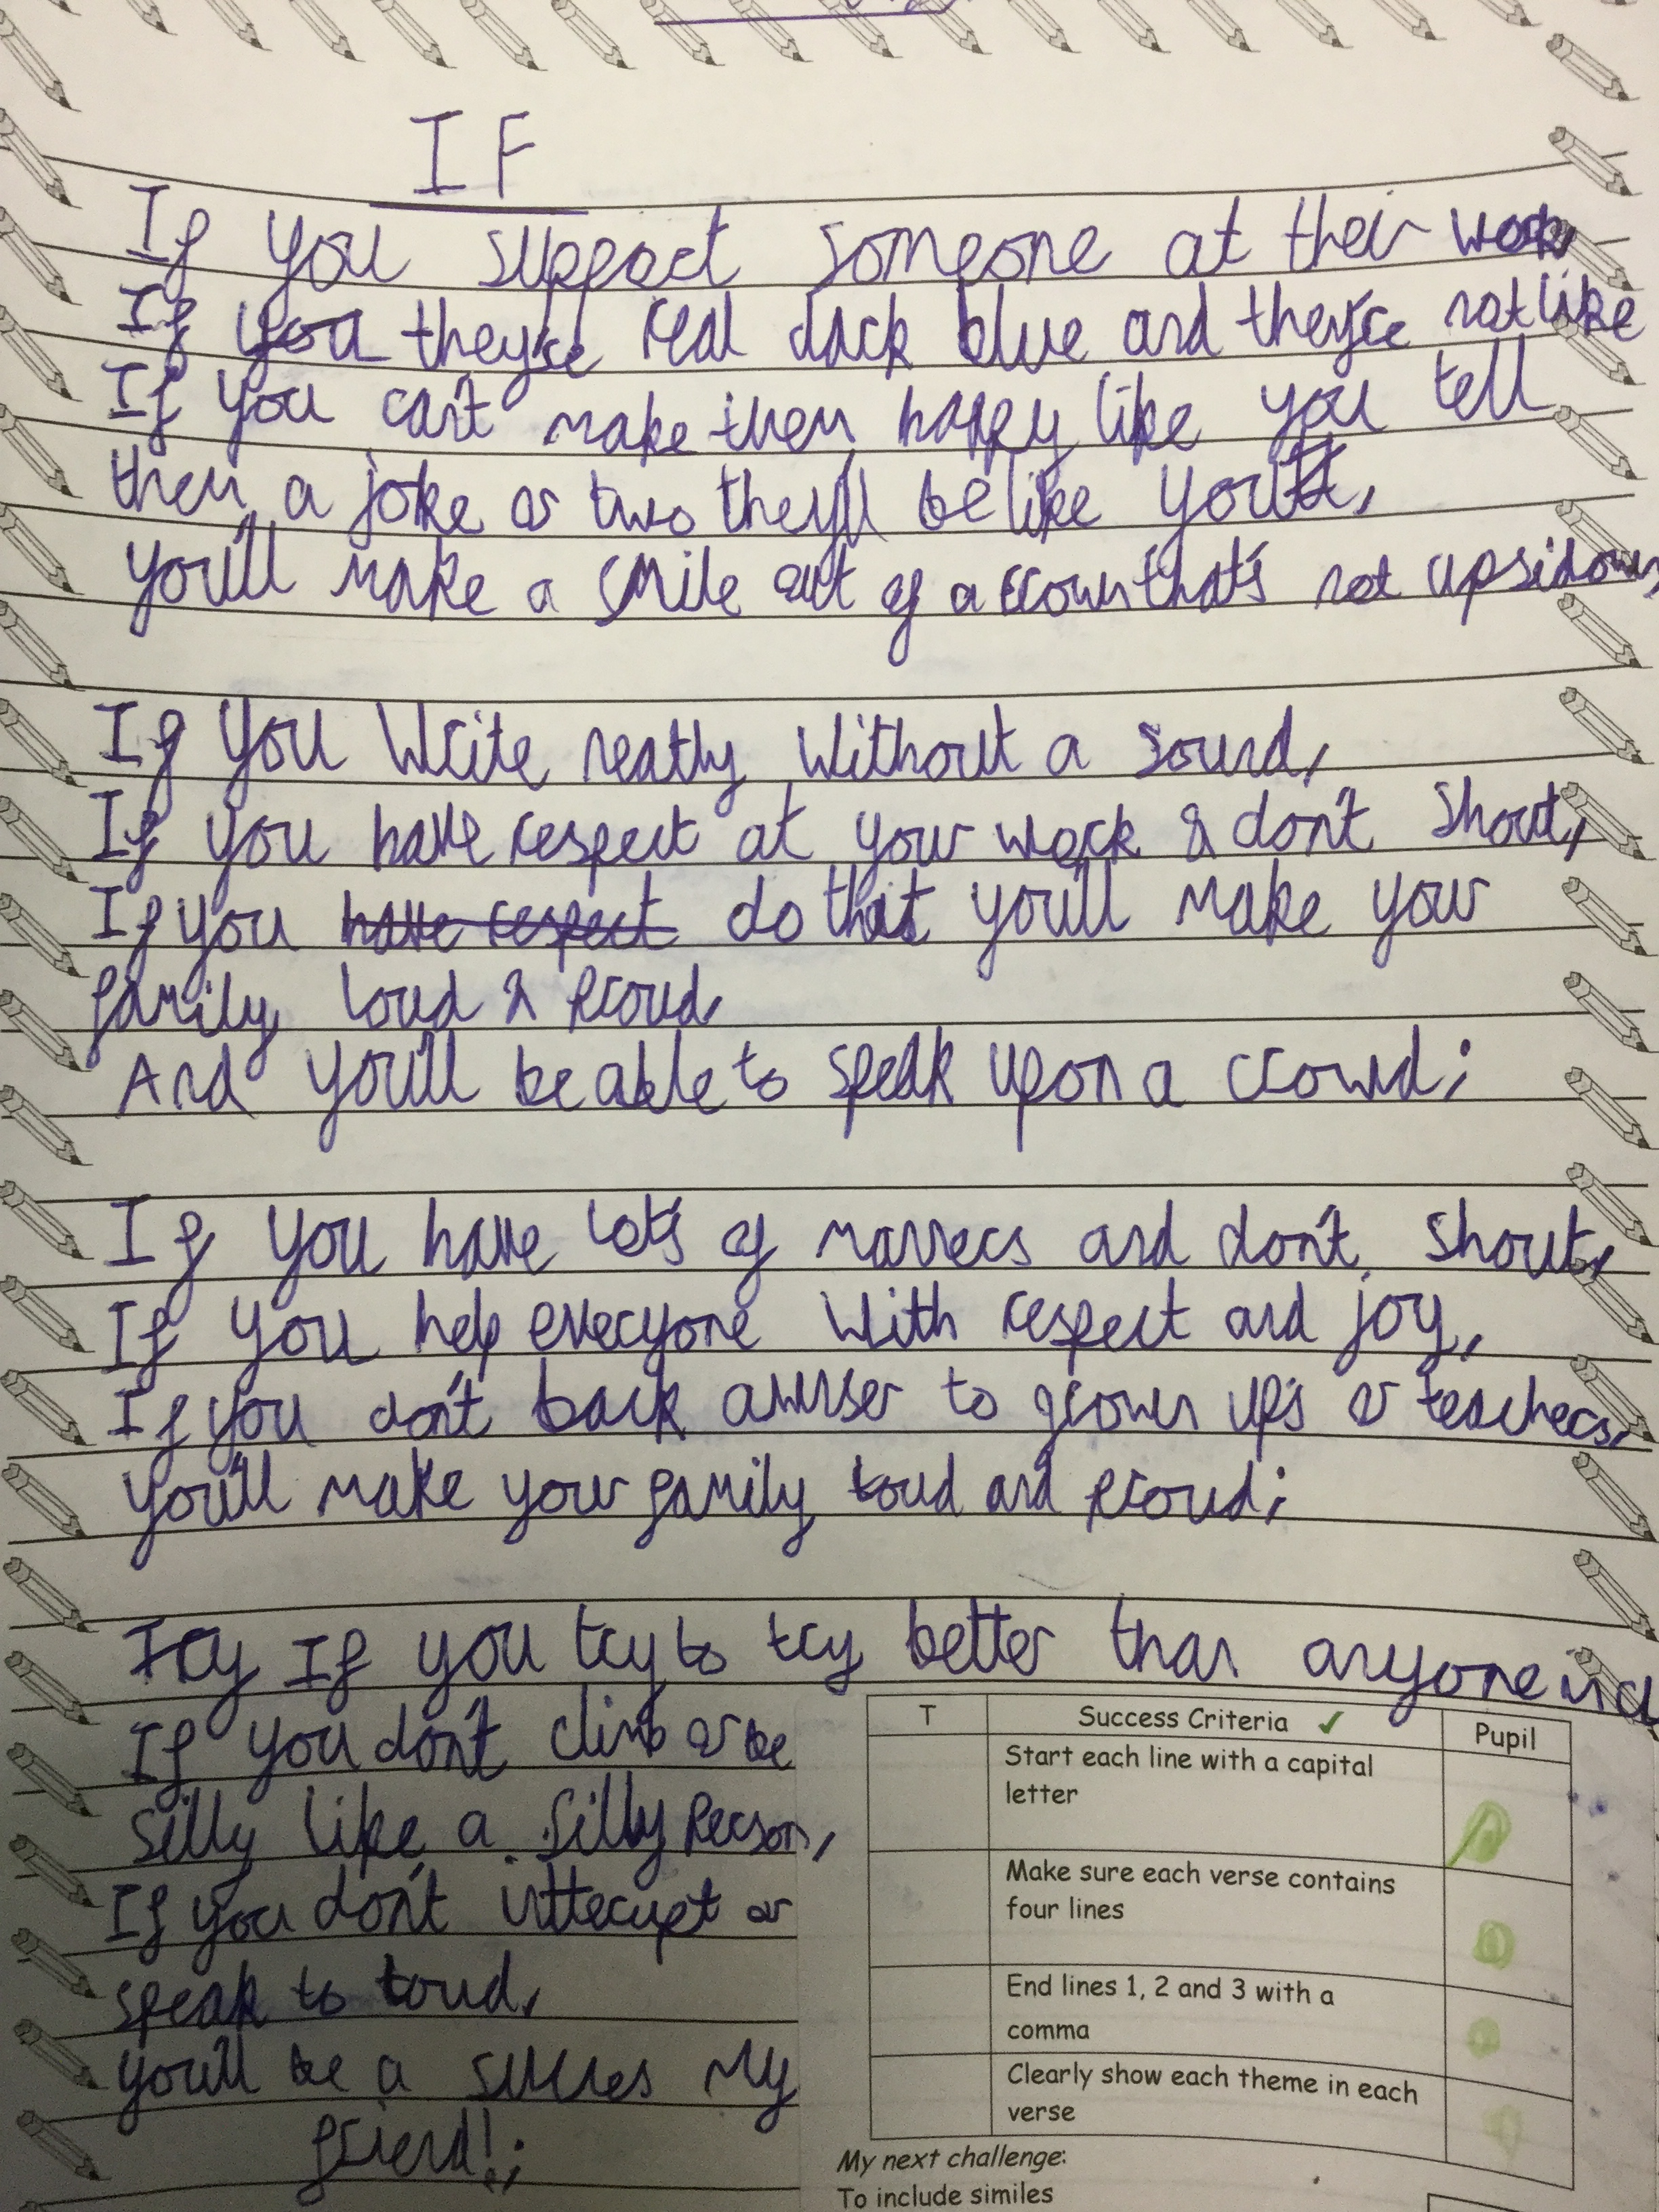 IF
If you support someone at their work,
If you they're real dark blue and they're not like
If you can't make them happy like you tell
them a joke or two they'll be like you'll,
you'll make a smile out of a frown that's not upsidown,
If you write neatly without a sound,
If you have respect at your work & don't shout,
If you have respect do that you'll make your
family loud & proud,
And you'll be able to speak upon a crowd;
If you have lot's of manners and don't shout,
If you help everyone with respect and joy,
If you don't back awnser to grown up's or teachers,
you'll make your family loud and proud;
Try If you try to try better than anyone
If you don't climb or be
silly like a silly person,
If you don't intterupt or
speak to loud,
you'll be a succes my
friend!;
T Success Criteria ✓ Pupil
Start each line with a capital
letter
Make sure each verse contains
four lines
End lines 1, 2 and 3 with a
comma
Clearly show each theme in each
verse
My next challenge:
To include similes